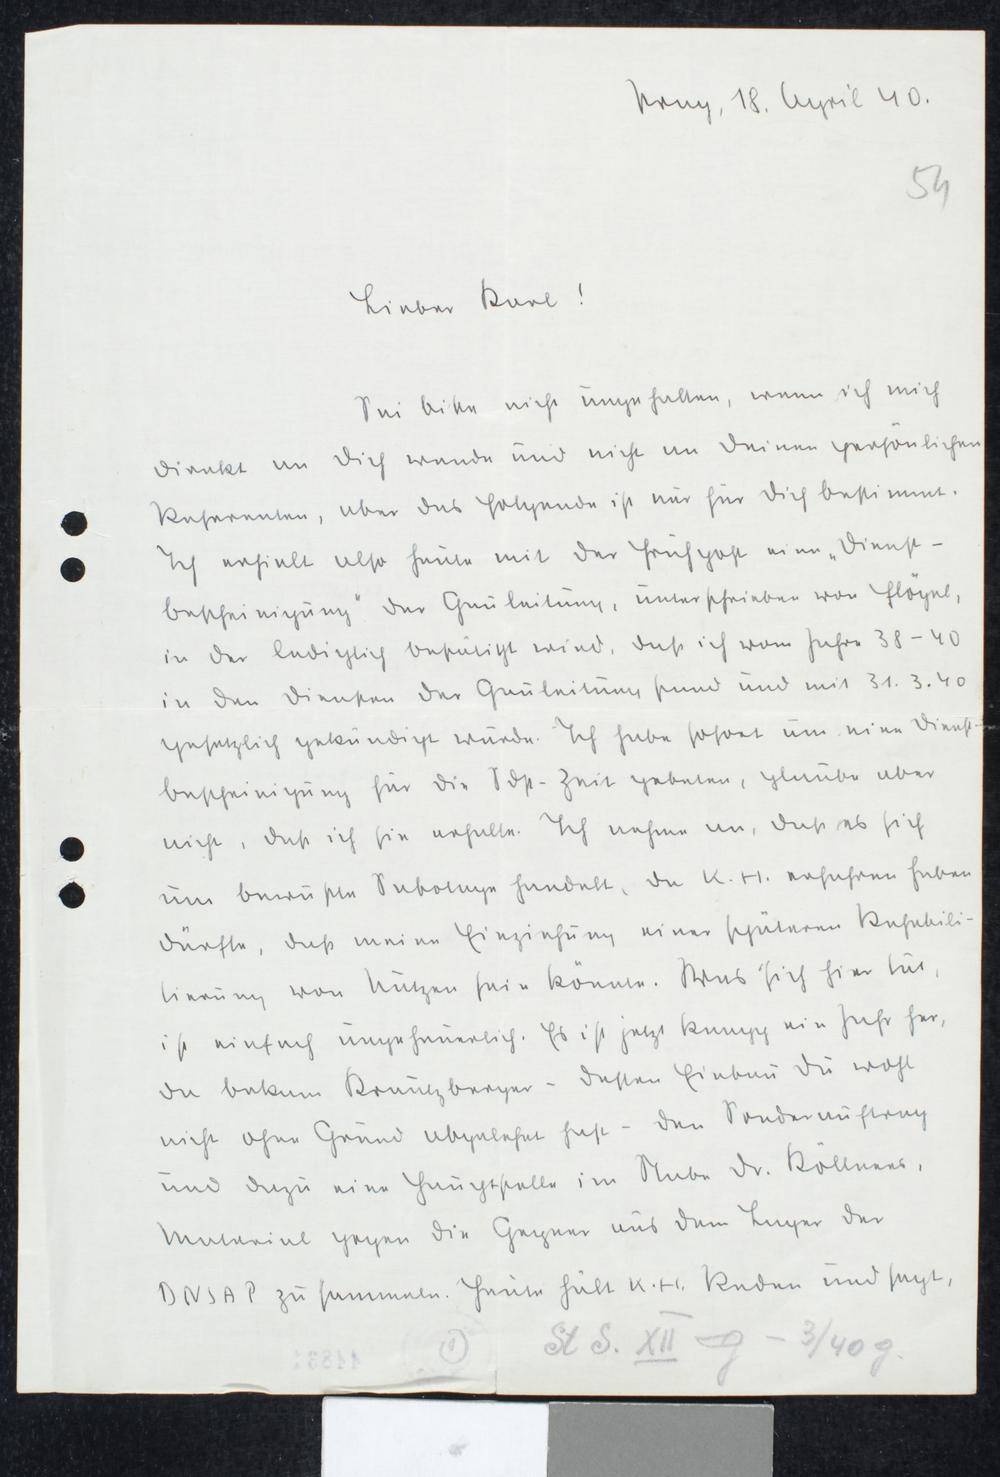 Prag, 18. April 40.
54
Lieber Karl!
Sei bitte nicht ungehalten, wenn ich mich
direkt an Dich wende und nicht an Deinen persönlichen
Referenten, aber das Folgende ist nur für Dich bestimmt.
Ich erhielt also heute mit der Frühpost eine „Dienst-
bescheinigung" der Gauleitung, unterschrieben von Flögel,
in der lediglich bestätigt wird, daß ich vom Jahre 38-40
in den Diensten der Gauleitung stand und mit 31.3.40
gesetzlich gekündigt wurde. Ich habe sofort um eine Dienst-
bescheinigung für die SdP-Zeit gebeten, glaube aber
nicht, daß ich sie erhalte. Ich nehme an, daß es sich
um bewußte Sabotage handelt, da K.H. erfahren haben
dürfte, daß meine Einziehung einer späteren Rehabili-
tierung von Nutzen sein könnte. Was sich hier tut,
ist einfach ungeheuerlich. Es ist jetzt knapp ein Jahr her,
da bekam Kreutzberger - dessen Einbau Du wohl
nicht ohne Grund abgelehnt hast - den Sonderauftrag
und dazu eine Hauptstelle im Stabe Dr. Köllners,
Material gegen die Gegner aus dem Lager der
DNSAP zu sammeln. Heute hält K.H. Reden und sagt,
St S. XII g - 3/40 g.